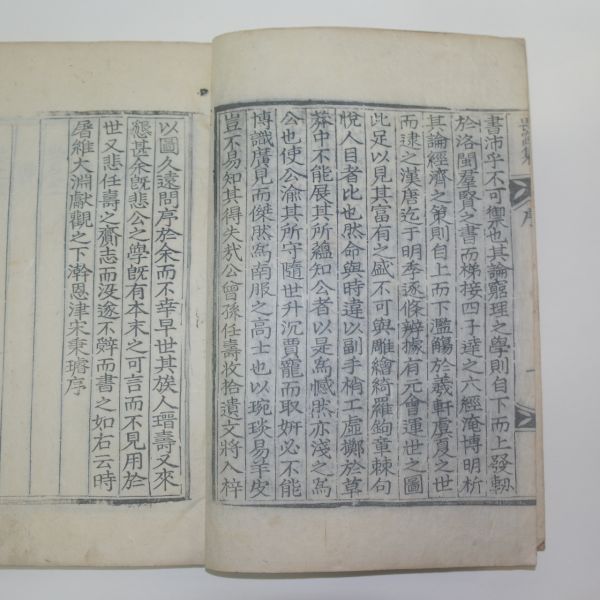 書沛乎不可禦也其論窮理之學則自下而上發軔
於洛閩羣賢之書而梯接四子達之六經淹博明析
其論經濟之策則自上而下濫觴於羲軒虞夏之世
而逮之漢唐迄于明季逐條辨據有元會運世之圖
此足以見其富有之盛不可與雕繪綺羅鉤章棘句
悅人目者比也然命與時違以副手梢工虛擲於草
莽中不能展其所蘊知公者以是爲憾然亦淺之爲
公也使公渝其所守隨世升沉賈寵而取姸必不能
博識廣見而傑然爲南服之高士也以琬琰易羊皮
豈不易知其得失哉公曾孫任壽收拾遺文將入梓
以圖久遠問序於余而不幸早世其族人瑨壽又來
懇甚余旣悲公之學旣有本末之可言而不見用於
世又悲任壽之齎志而没遂不辭而書之如右云時
屠維大淵獻觀之下澣恩津宋秉璿序
序